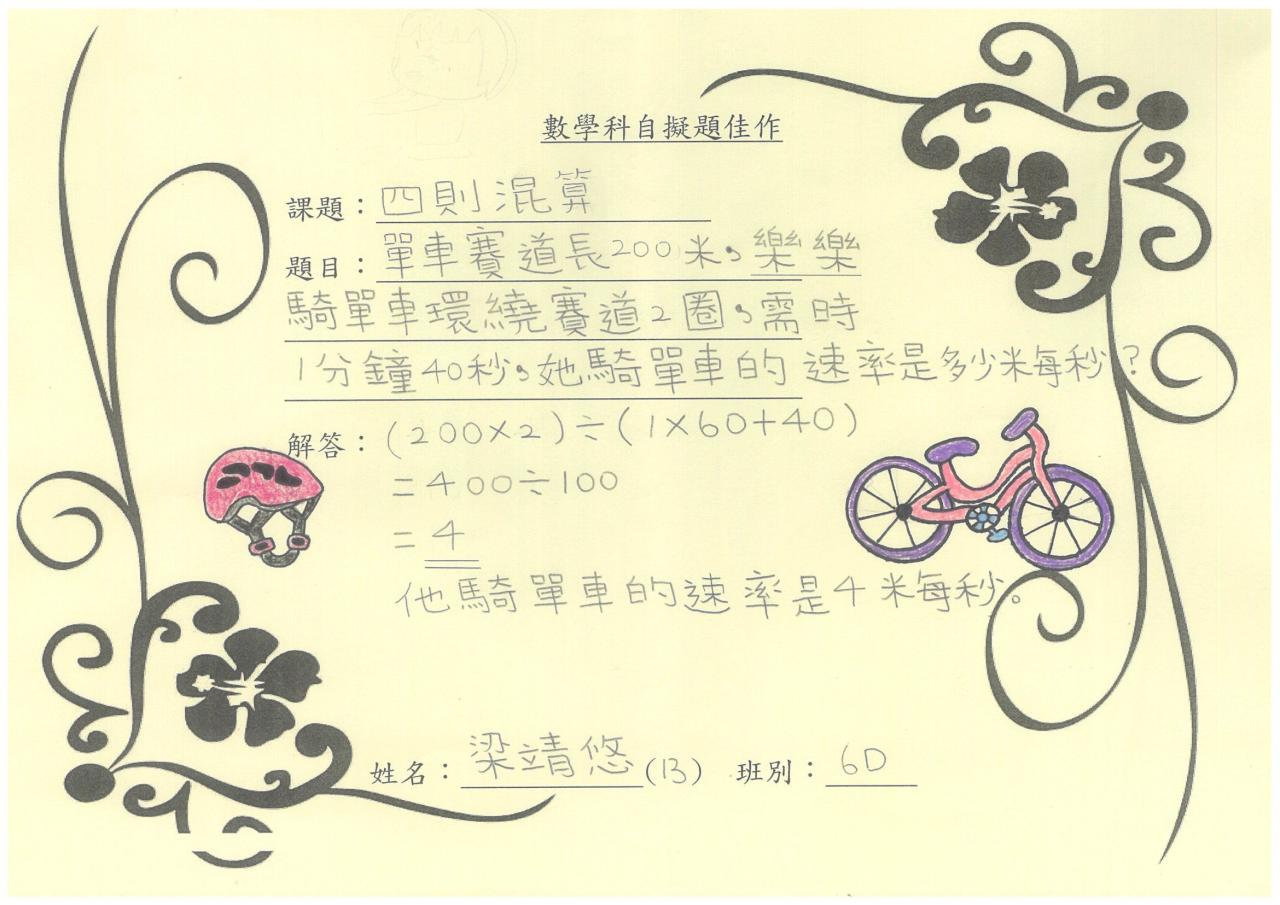 數學科自擬題佳作
課題：四則混算
題目：單車賽道長200米，樂樂
騎單車環繞賽道2圈，需時
1分鐘40秒，她騎單車的速率是多少米每秒？
解答：(200×2)÷(1×60+40)
=400÷100
=4
他騎單車的速率是4米每秒。
姓名：梁靖悠(13) 班別：6D